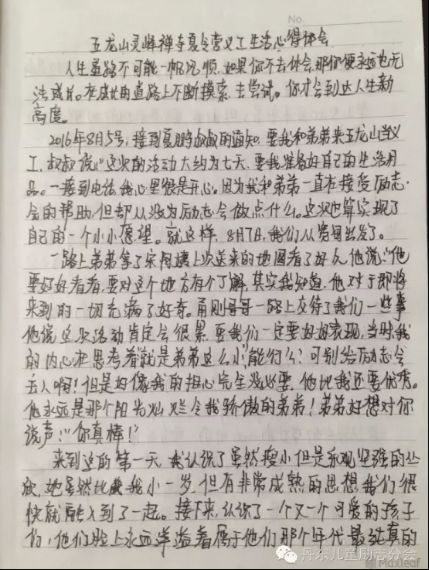 No.
五龙山灵峰禅寺夏令营义工生活心得体会
人生道路不可能一帆风顺,如果你不去体会,那你便永远也无
法成长。在成长的道路上不断摸索,去尝试。你才会到达人生新
高度。
2016年8月5号,接到夏鹏叔叔的通知,要我和弟弟来五龙山当义
工,叔叔说:"这次的活动大约为七天,要我准备好自己的生活用
品。一接到电话,我心里很是开心。因为我和弟弟一直在接受励志
会的帮助,但却从没为励志会做点什么。这次也算实现了
自己的一个小小愿望。就这样,8月7日,我们从宽甸出发了。
一路上弟弟拿了宋阿姨上次送来的地图看了好久,他说:"他
要好好看看,要对这个地方有个了解,其实我知道,他对于即将
来到的一切充满了好奇。哥哥一路上交待了我们一些事
他说这次活动肯定会很累,要我们一定要好好表现,当时,我
的内心在思考着就是弟弟这么小!能行么?可别给励志会
丢人啊!但是好像我的担心完全没必要,他比我还要优秀。
他永远是那个阳光灿烂令我骄傲的弟弟!弟弟好想对你
说声:"你真棒!"
来到这的第一天,我认识了虽然瘦小但是乐观坚强的丛
欣,她虽然比我小一岁,但有非常成熟的思想,我们很
快就融入到了一起。接下来,认识了一个又一个可爱的孩子
们,他们脸上永远洋溢着属于他们那个年代最纯真的
丹东儿童励志分会
Maxleaf